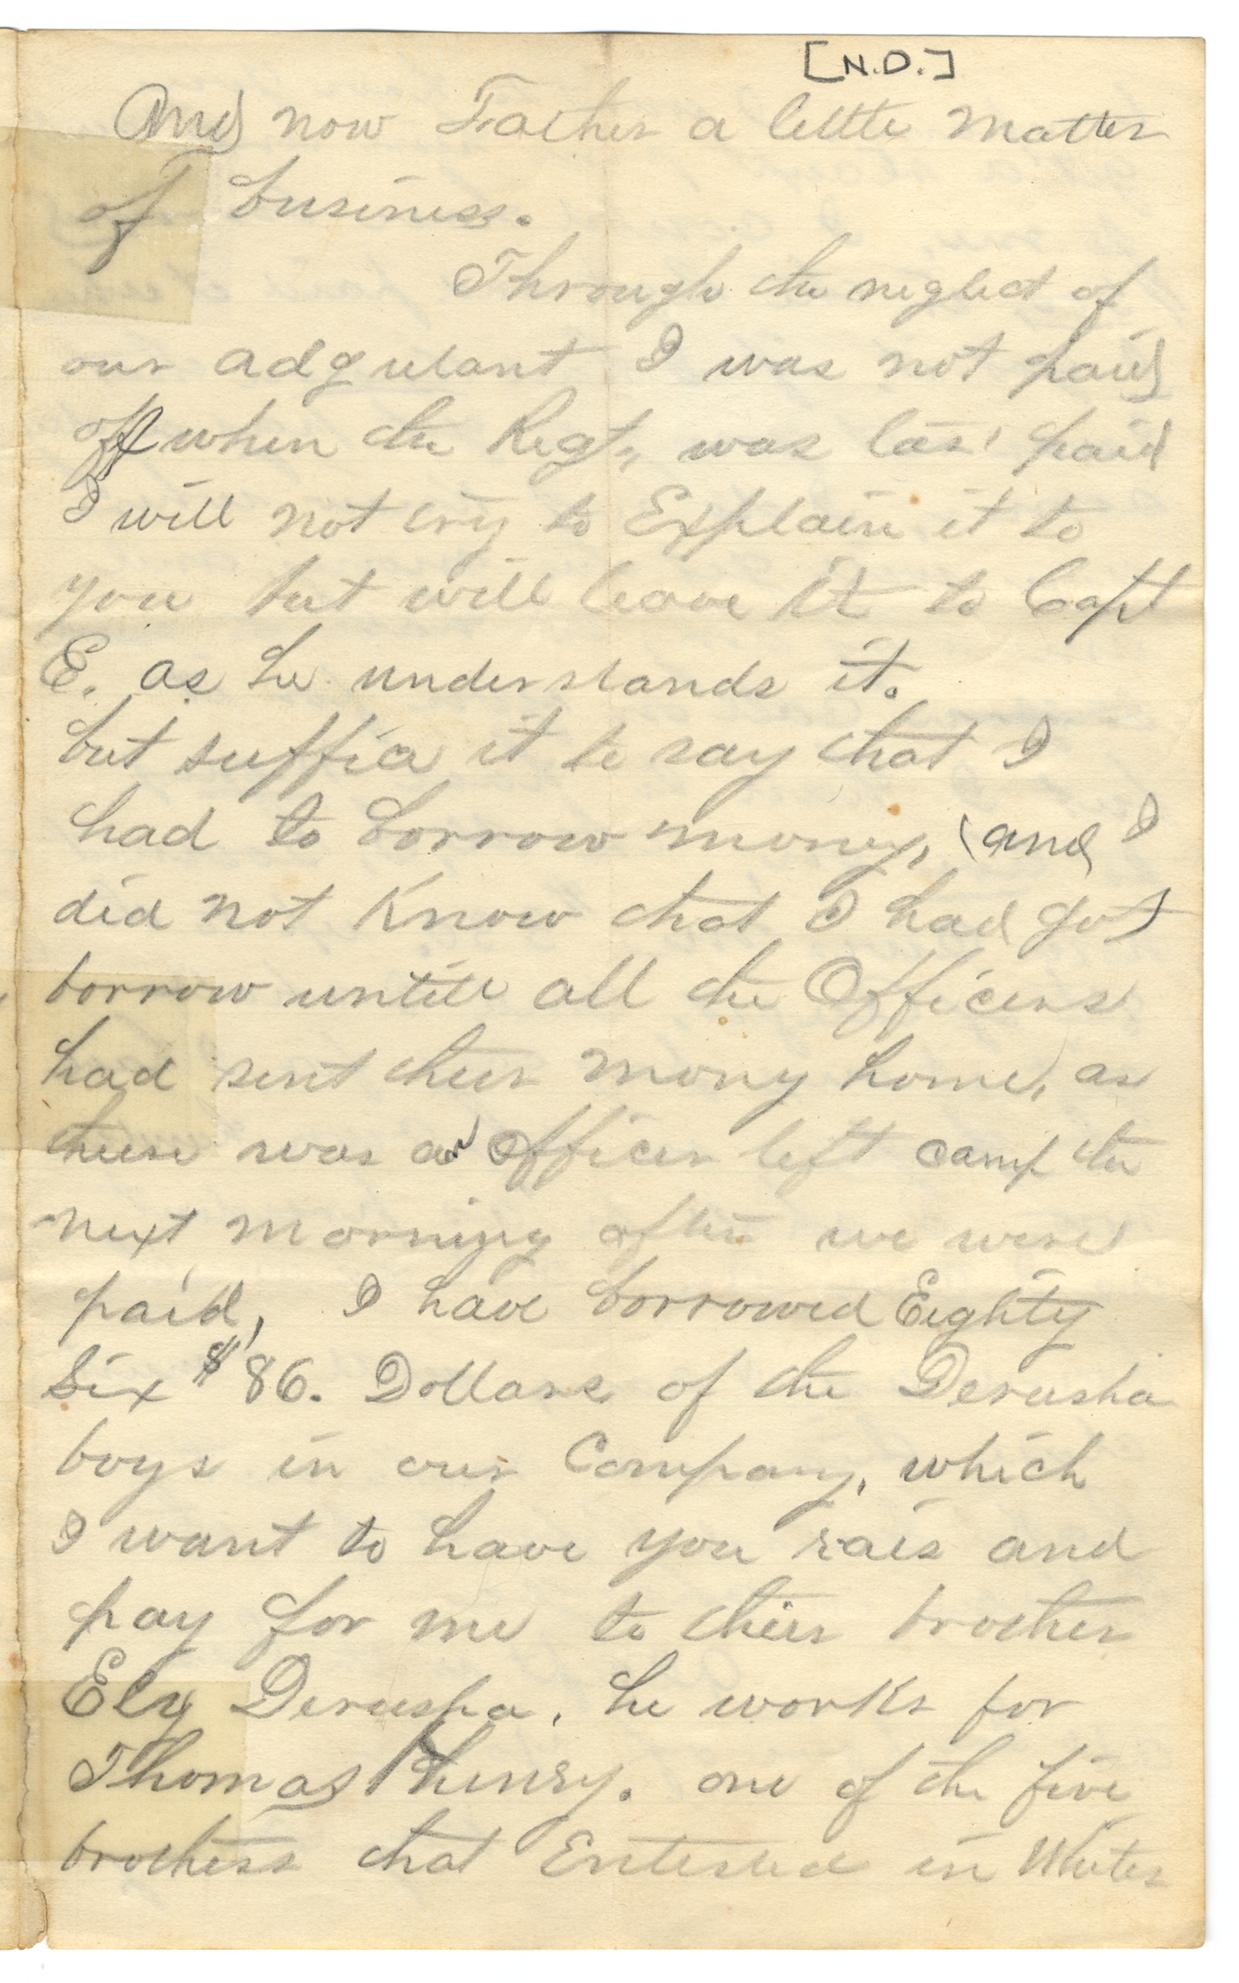 [N.D.]
And now Father a little matter
of business.
Through the neglect of
our adgutant I was not paid
off when the Regt, was last paid
I will not try to Explain it to
you but will leave it to Capt
E. as he understands it.
but suffice it to say that I
had to borrow mony, (and I
did not Know that I had got
borrow untill all the Officers
had sent their mony home, as
there was an Officer left camp the
next morning after we were
paid, I have borrowed Eighty
Six $86. Dollars of the Derusha
boys in our Company, which
I want to have you rais and
pay for me to their brother
Ely Derusha, he works for
Thomas Henry. one of the five
brothers that Entested in Whites